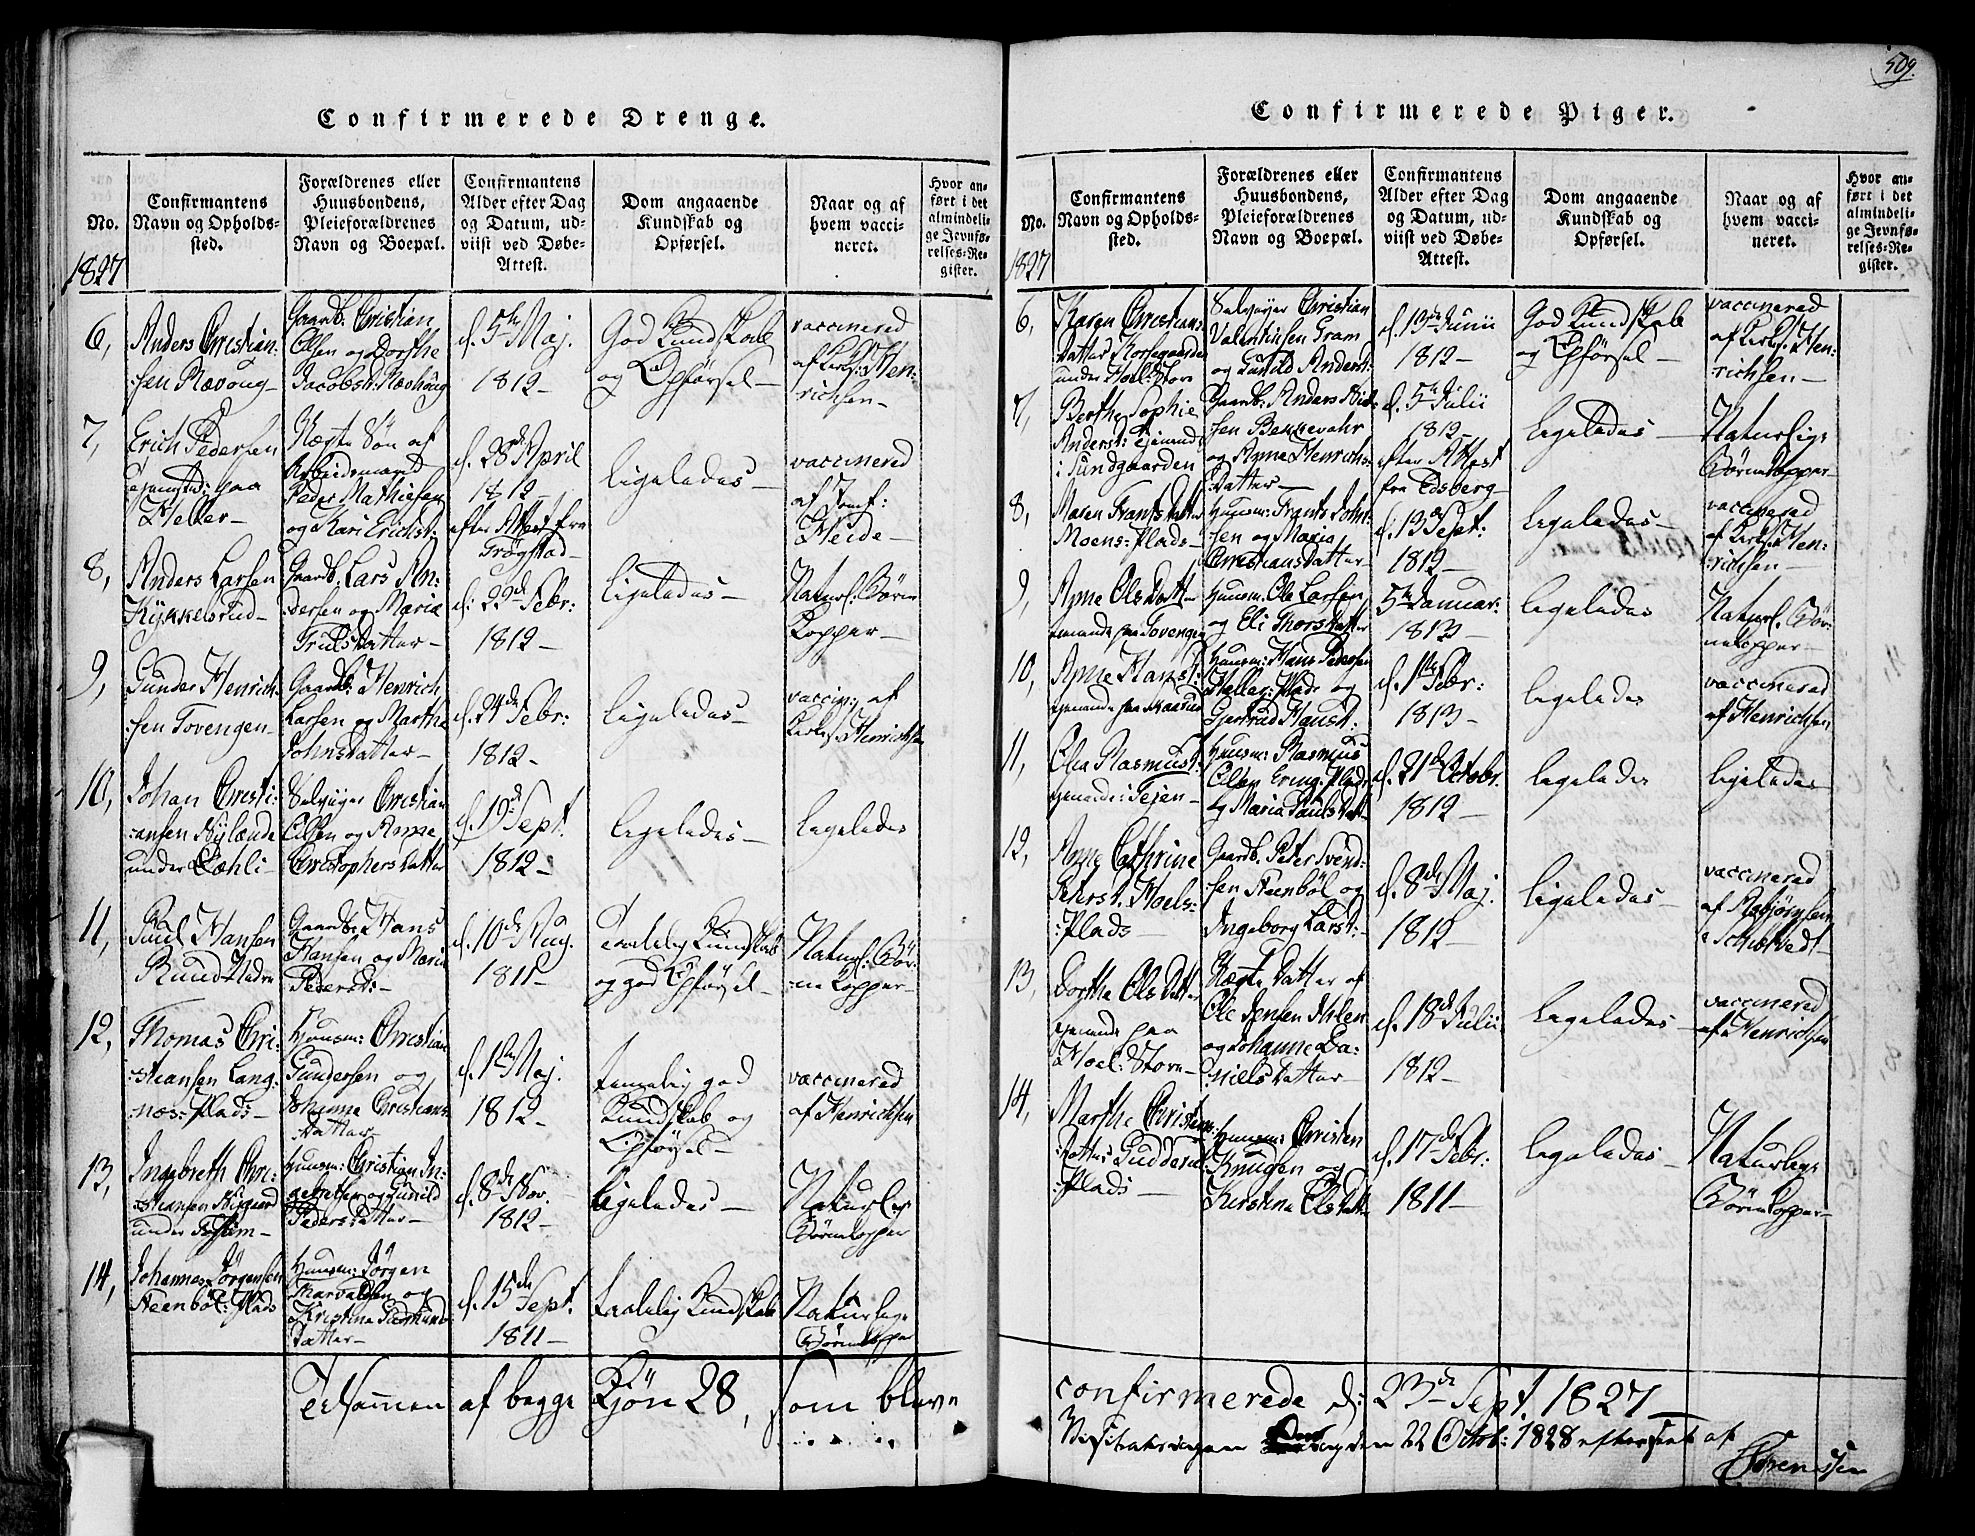 509.
Confirmerede Drenge.
No.
Confirmantens
Navn og Opholds-
sted.
Forældrenes eller
Huusbondens,
Pleieforældrenes
Navn og Boepæl.
Confirmantens
Alder efter Dag
og Datum, ud-
viist ved Døbe-
Attest.
Dom angaaende
Kundskab og
Opførsel.
Naar og af
hvem vacci-
neret.
Hvor an-
ført i det
almindeli-
ge Jevnfø-
relses-Re-
gister.
1827
6,
Anders Christian-
sen Rævoug
Gaardb: Christian
Olsen og Dorthe
Jacobsd: Ravhoug
d. 5te Maj.
1812
God Kundskab
og Opførsel
vaccinered
af Kirks: Hen-
richsen
7,
Erich Pedersen
tjenested: paa
Heller
Uægte Søn af
Arbeidsmand
Peder Mathiesen
og Kari Erichsd:
d. 28de April
1812
efter Attest fra
Trøgstad
ligeledes
vaccinered
af
Heide
8,
Anders Larsen
Kykkelsrud
Gaardb: Lars An-
dersen og Maria
Trulsdatter
d: 22de Febr:
1812
ligeledes
Naturl: Børne
Kopper
9,
Gunder Henrich-
sen Tovengen
Gaardb: Henrich
Larsen og Marthe
Johnsdatter
d. 24de Febr:
1812
ligeledes
vaccin: af
Kirks: Henrichsen
10,
Johan Christi-
ansen Nylænde
under Dæhli
Selvejer Christian
Olsen og Anne
Christophersdatter
d. 19de Sept.
1812
ligeledes
ligeledes
11,
Poul Hansen
Rund Nedre
Gaardb: Hans
Hansen og Maria
Pedersd:
d. 10de Aug.
1811
Taalelig Kundskab
og god Opførsel
Naturl: Bør-
ne Kopper
12,
Thomas Chri-
stiansen Lang-
næs: Plads
Huusm: Christian
Gundersen og
Johanne Christians
datter
d. 1te Maj.
1812
temmelig god
Kundskab og
Opførsel
vaccinered
af Henrichsen
13,
Ingebreth Chri-
stiansen Nygaard
under
Huusm: Christian In-
gebrethsen og Gunild
Pedersdatter
d. 8de Nov.
1812
ligeledes
Naturlige
Børnekopper
14,
Johannes Jørgensen
Steenbøl: Plads
Huusm: Jørgen
Tharvaldsen og
Kristine Gudmunds
datter
d. 15de Sept.
1811
taalelig Kundskab
Naturlige
Børnekopper
Tilsammen af begge Kjøn 28, som bleve
Confirmerede Piger.
No.
Confirmantens
Navn og Opholds-
sted.
Forældrenes eller
Huusbondens,
Pleieforældrenes
Navn og Boepæl.
Confirmantens
Alder efter Dag
og Datum, ud-
viist ved Døbe-
Attest.
Dom angaaende
Kundskab og
Opførsel.
Naar og af
hvem vacci-
neret.
Hvor an-
ført i det
almindeli-
ge Jevnfø-
relses-Re-
gister.
1827
6,
Karen Christians-
datter Korsegaarden
under Hoel: Store
Selvejer Christian
Valentinsen Gram
og Gunild Andersd:
d. 13de Junii
1812
God Kundskab
og Opførsel
vaccinered
af Kirks: Hen-
richsen
7,
Berthe Sophie
Andersd: tjenende
i Sundgaarden
Gaardb: Anders
sen Bennevahr
og Anne Henrichs-
datter
d. 5te Julii
1812
efter Attest
fra Edsberg
ligeledes
Naturlige
Børnekopper
8,
Maren Frantsdatter
Moens: Plads
Huusm: Frants John-
sen og Maria
Christiansdatter
d. 13de Sept:
1812
ligeledes
vaccinered
af Kirks: Hen-
richsen
9,
Anne Olsdatter
tjenende paa Tovengen
Huusm: Ole Larsen
og Eli Thorsdatter
5te Januar:
1813
ligeledes
Naturl: Bør-
nekopper
10,
Anne Hansd:
tjenende paa
Huusm: Hans Pedersen
Helleg: Plads og
Gjertrud Hansd:
d. 1te Febr:
1813
ligeledes
vaccinered
af Henrichsen
11,
Olea Rasmusd:
tjenende i Teien
Huusm: Rasmus
Olsen Plads
og Maria Paulsdatter
d. 21de Octobr.
1812
ligeledes
ligeledes
12,
Anne Cathrine
Petersd. Hoels-
Plads
Gaardb. Peter Svend-
sen Steenbøl og
Ingeborg Larsd:
d. 8de Maj.
1812
ligeledes
vaccinered
af Asbjørnsen
i Schibstved
13,
Dorthe Olsdatter
tjenende paa
Hoel: Store
Uægte Datter af
Ole Jensen Ihlen
og Johanne Da-
nielsdatter
d. 18de Julii
1812
ligeledes
vaccinered
af Henrichsen
14,
Marthe Christens-
datter Gudderud
Plads
Huusm: Christen
Knudsen og
Kirstine Olsdatter
d. 17de Febr:
1811
ligeledes
Naturlige
Børnekopper
confirmerede d: 23de Sept. 1827
Visitatsdagen Onsdag den 22 Octbr: 1828 efterseet af
Sørenssen